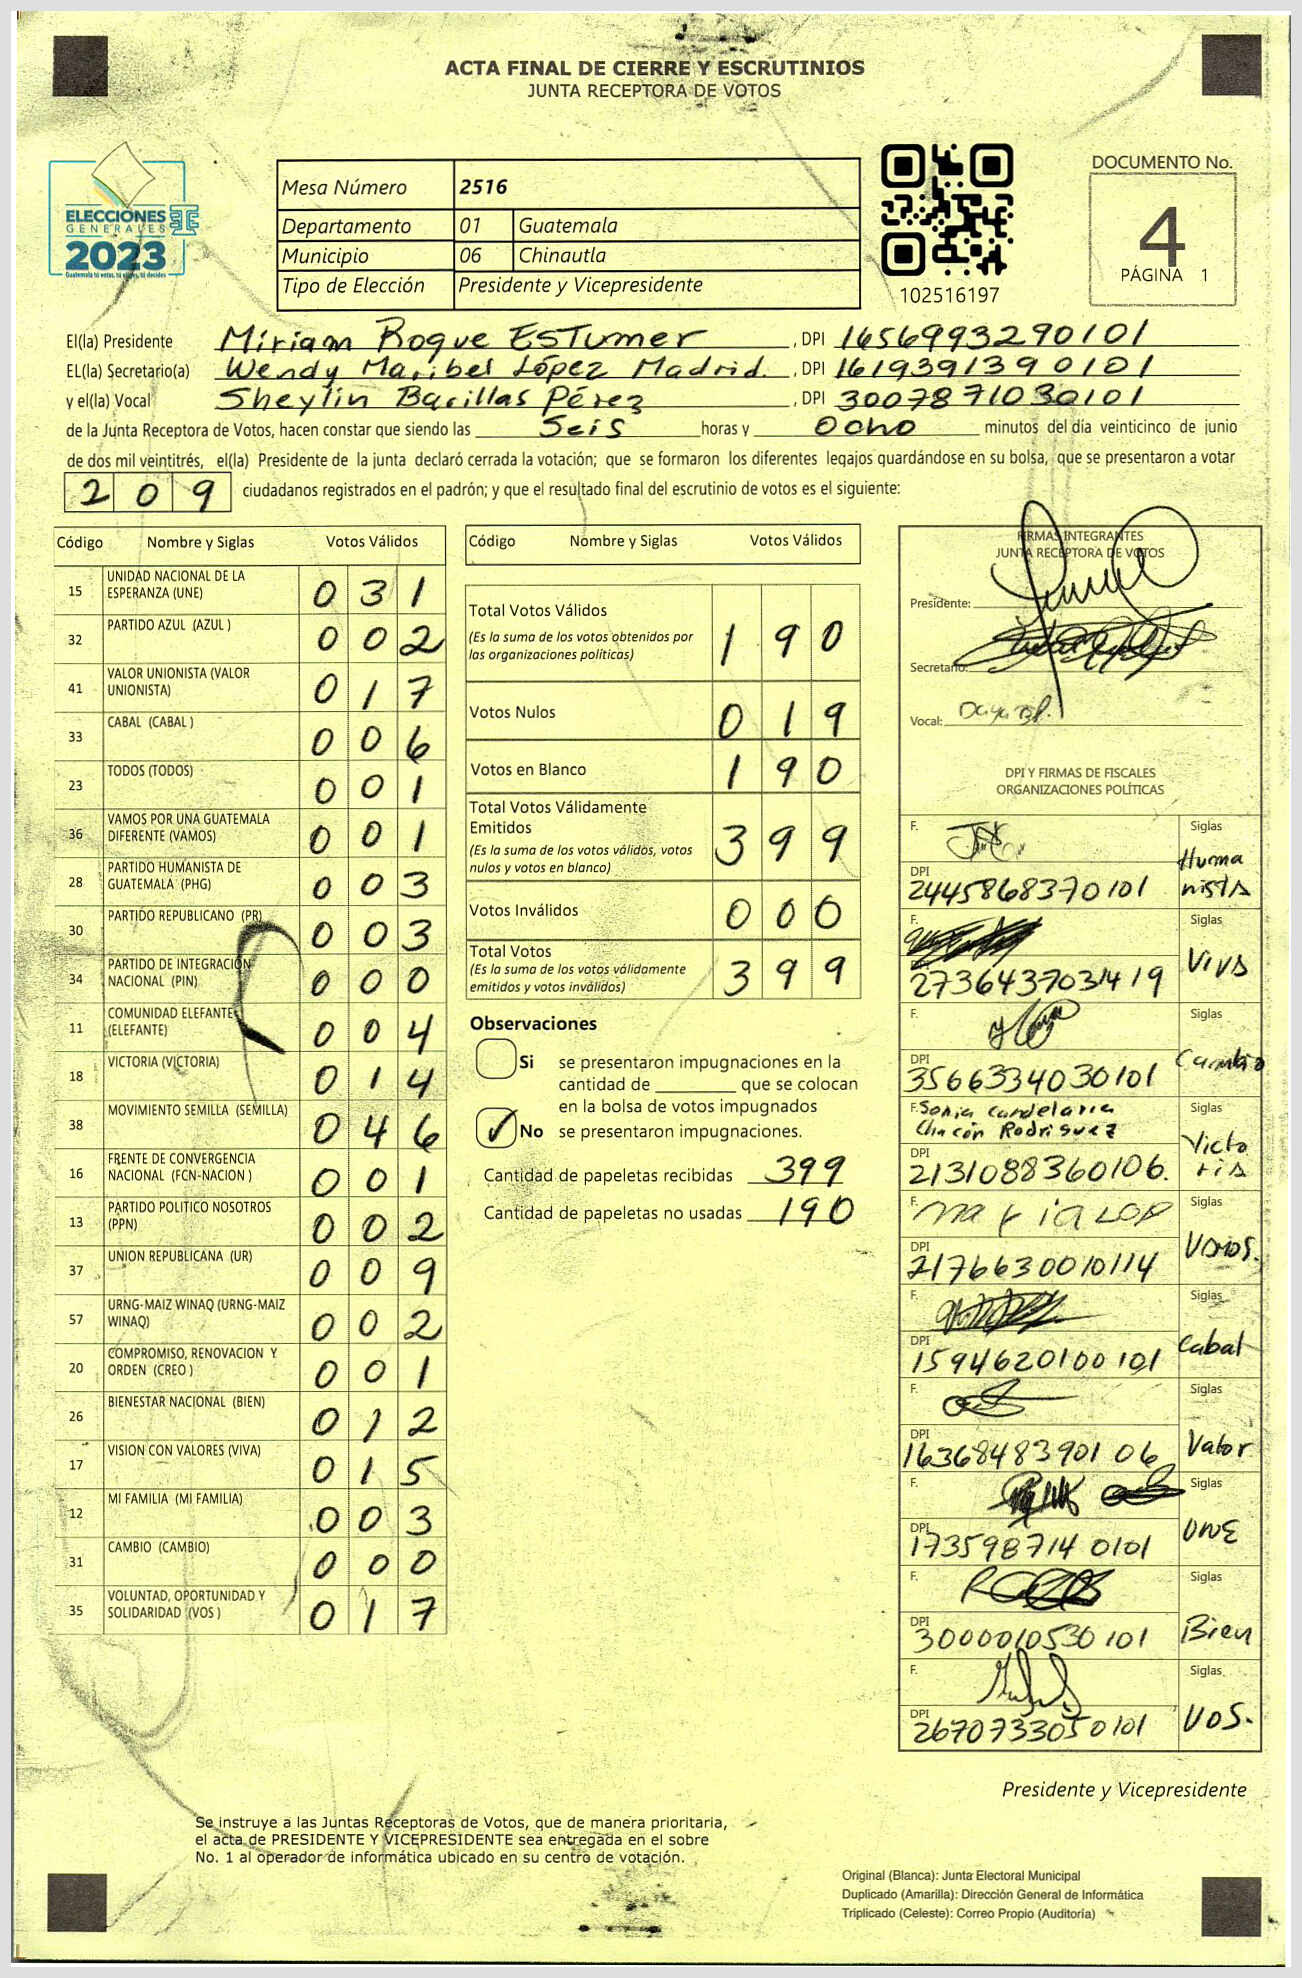 ACTA FINAL DE CIERRE Y ESCRUTINIOS
JUNTA RECEPTORA DE VOTOS
ELECCIONES
GENERALES
2023
Guatemala tú votas, tú eliges, tú decides
Mesa Número 2516
Departamento 01 Guatemala
Municipio 06 Chinautla
Tipo de Elección Presidente y Vicepresidente
102516197
DOCUMENTO No.
4
PÁGINA 1
El(la) Presidente Miriam Roque EsTumer, DPI 1656993290101
EL(la) Secretario(a) Wendy Maribel López Madrid. , DPI 1619391390101
y el(la) Vocal Sheylin Barillas Pérez , DPI 3007871030101
de la Junta Receptora de Votos, hacen constar que siendo las Seis horas y Ocho minutos del día veinticinco de junio
de dos mil veintitrés, el(la) Presidente de la junta declaró cerrada la votación; que se formaron los diferentes legajos guardándose en su bolsa, que se presentaron a votar
209 ciudadanos registrados en el padrón; y que el resultado final del escrutinio de votos es el siguiente:
Código Nombre y Siglas Votos Válidos
15 UNIDAD NACIONAL DE LA ESPERANZA (UNE) 031
32 PARTIDO AZUL (AZUL ) 002
41 VALOR UNIONISTA (VALOR UNIONISTA) 017
33 CABAL (CABAL ) 006
23 TODOS (TODOS) 001
36 VAMOS POR UNA GUATEMALA DIFERENTE (VAMOS) 001
28 PARTIDO HUMANISTA DE GUATEMALA (PHG) 003
30 PARTIDO REPUBLICANO (PR) 003
34 PARTIDO DE INTEGRACIÓN NACIONAL (PIN) 000
11 COMUNIDAD ELEFANTE (ELEFANTE) 004
18 VICTORIA (VICTORIA) 014
38 MOVIMIENTO SEMILLA (SEMILLA) 046
16 FRENTE DE CONVERGENCIA NACIONAL (FCN-NACION ) 001
13 PARTIDO POLITICO NOSOTROS (PPN) 002
37 UNION REPUBLICANA (UR) 009
57 URNG-MAIZ WINAQ (URNG-MAIZ WINAQ) 002
20 COMPROMISO, RENOVACION Y ORDEN (CREO ) 001
26 BIENESTAR NACIONAL (BIEN) 012
17 VISION CON VALORES (VIVA) 015
12 MI FAMILIA (MI FAMILIA) 003
31 CAMBIO (CAMBIO) 000
35 VOLUNTAD, OPORTUNIDAD Y SOLIDARIDAD (VOS ) 017
Código Nombre y Siglas Votos Válidos
Total Votos Válidos 190
(Es la suma de los votos obtenidos por
las organizaciones políticas)
Votos Nulos 019
Votos en Blanco 190
Total Votos Válidamente
Emitidos 399
(Es la suma de los votos válidos, votos
nulos y votos en blanco)
Votos Inválidos 000
Total Votos 399
(Es la suma de los votos válidamente
emitidos y votos inválidos)
Observaciones
Si se presentaron impugnaciones en la
cantidad de ________ que se colocan
en la bolsa de votos impugnados
No se presentaron impugnaciones.
Cantidad de papeletas recibidas 399
Cantidad de papeletas no usadas 190
FIRMAS INTEGRANTES
JUNTA RECEPTORA DE VOTOS
Presidente:
Secretario:
Vocal:
DPI Y FIRMAS DE FISCALES
ORGANIZACIONES POLÍTICAS
F. Siglas
Huma
nista
DPI
2445868370101
F. Siglas
Viva
2736437031419
F. Siglas
Cambio
DPI
3566334030101
F. Sonia Candelaria Siglas
Chacón Rodriguez
Victo
ria
DPI
2131088360106.
F. Siglas
Vamos.
DPI
2176630010114
F. Siglas
Cabal
DPI
1594620100101
F. Siglas
Valor
DPI
1636848390106
F. Siglas
UNE
DPI
1735987140101
F. Siglas
Bien
DPI
3000010530101
F. Siglas
VOS.
DPI
2670733050101
Presidente y Vicepresidente
Se instruye a las Juntas Receptoras de Votos, que de manera prioritaria,
el acta de PRESIDENTE Y VICEPRESIDENTE sea entregada en el sobre
No. 1 al operador de informática ubicado en su centro de votación.
Original (Blanca): Junta Electoral Municipal
Duplicado (Amarilla): Dirección General de Informática
Triplicado (Celeste): Correo Propio (Auditoría)